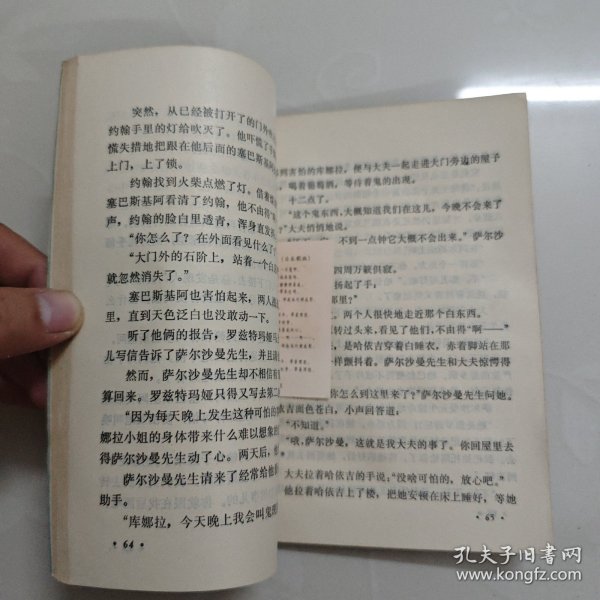 突然，从已经被打开了的门外吹
约翰手里的灯给吹灭了。他吓慌了手
慌失措地把跟在他后面的塞巴斯基阿
上门，上了锁。
约翰找到火柴点燃了灯。借着
塞巴斯基阿看清了约翰，他不由得
声，约翰的脸白里透青，浑身直发
“你怎么了？在外面看见什么了
“大门外的石阶上，站着一个白
就忽然消失了。”
塞巴斯基阿也害怕起来，两人战
里，直到天色泛白也没敢动一下。
听了他俩的报告，罗兹特玛娅马
儿写信告诉了萨尔沙曼先生，并且请
然而，萨尔沙曼先生却不相信有
算回来。罗兹特玛娅只得又写去第二
“因为每天晚上发生这种可怕的
娜拉小姐的身体带来什么难以想象的
得萨尔沙曼先生动了心。两天后，他
萨尔沙曼先生请来了经常给他们
助手。
“库娜拉，今天晚上我会叫鬼现
·64·
到害怕的库娜拉，便与大夫一起走进大门旁边的屋子
，喝着葡萄酒，等待着鬼的出现。
十二点了。
“这个鬼东西，大概知道我们在这儿，今晚不会来了
”大夫悄悄地说。
不到一点钟它大概不会出来。”萨尔沙
四周万籁俱寂。
扬起了手，
那里？”
，两个人很快地走近那个白东西。
转过头来，看见了他们，不由得“啊——”
，是哈依吉穿着白睡衣，赤着脚站在那
一样颤抖着。萨尔沙曼先生和大夫惊愕得
你怎么到这里来了？”萨尔沙曼先生问她。
依吉面色苍白，小声回答道，
“不知道。”
“哦，萨尔沙曼，这就是我大夫的事了。你回屋里去
大夫拉着哈依吉的手说：“没啥可怕的，放心吧。”
他拉着哈依吉上了楼，把她安顿在床上睡好，等她
·65·
孔夫子旧书网
www.kongfz.com